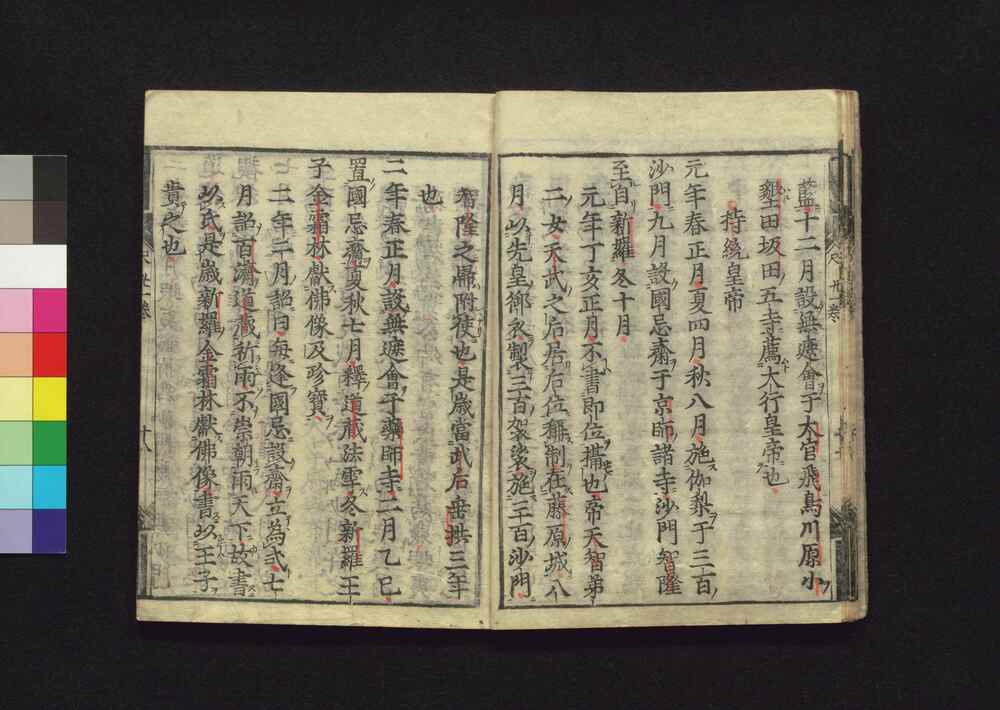 藍十二月設無遮會于大官飛鳥川原小
墾田坂田五寺薦大行皇帝也
持統皇帝
元年春正月夏四月秋八月施伽梨于三百
沙門九月設國忌齋于京師諸寺沙門智隆
至自新羅冬十月
元年丁亥正月不書即位攝也帝天智弟
二女天武之后居后位稱制在藤原城八
月以先皇御衣製三百袈裟施三百沙門
智隆之歸附寇也是歲當武后垂拱三年
也
二年春正月設無遮會于藥師寺二月乙巳
置國忌齋夏秋七月釋道藏法雩冬新羅王
子金霜林獻佛像及珍寶
二年二月詔曰每逢國忌設齋立為式七
月詔百濟道藏祈雨不崇朝雨天下故書
以氏是歲新羅金霜林獻佛像書以王子
貴之也